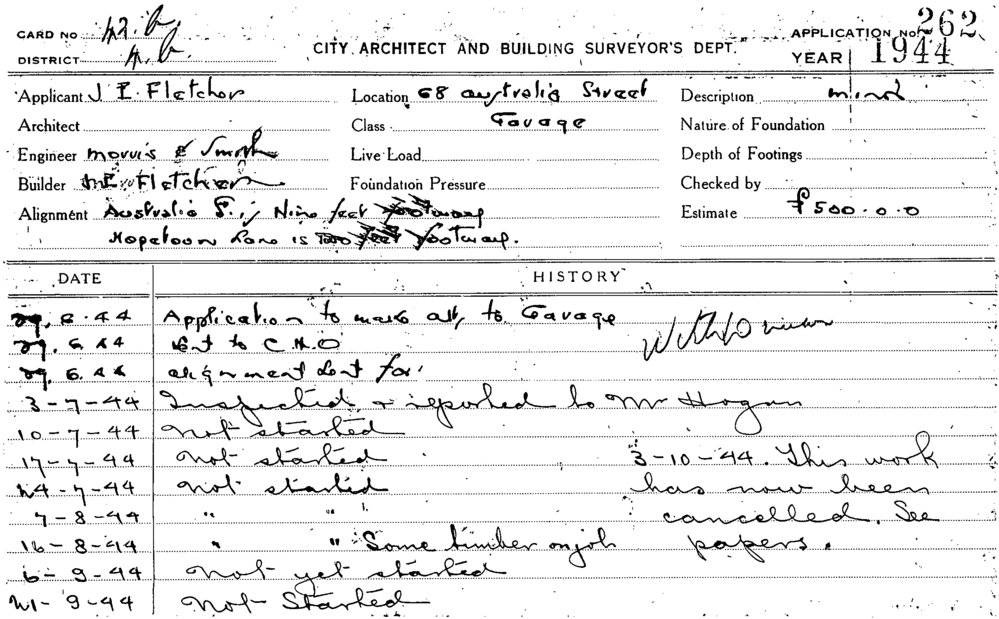 CARD NO
APPLICATION No. 262
DISTRICT
CITY ARCHITECT AND BUILDING SURVEYOR'S DEPT.
YEAR 1944
Applicant J E Fletcher
Location 68 Australia Street
Description minor
Architect
Class Garage
Nature of Foundation
Engineer Morris & Smith
Live Load
Depth of Footings
Builder J.E. Fletcher
Foundation Pressure
Checked by
Alignment Australia St., Nine feet footway
Estimate £500.0.0
Hopetoun Lane is footway.
DATE HISTORY
29.6.44 Application to make to Garage
29.6.44 Sent to C.H.O
29.6.44 alignment sent for
Withdrawn
3-7-44 Inspected & reported to Mr Hogan
10-7-44 Not started
17-7-44 Not started
24-7-44 Not started
7-8-44 " "
16-8-44 " " Some timber on job
6-9-44 Not yet started
21-9-44 Not Started
3-10-44. This work
has now been
cancelled. See
papers.